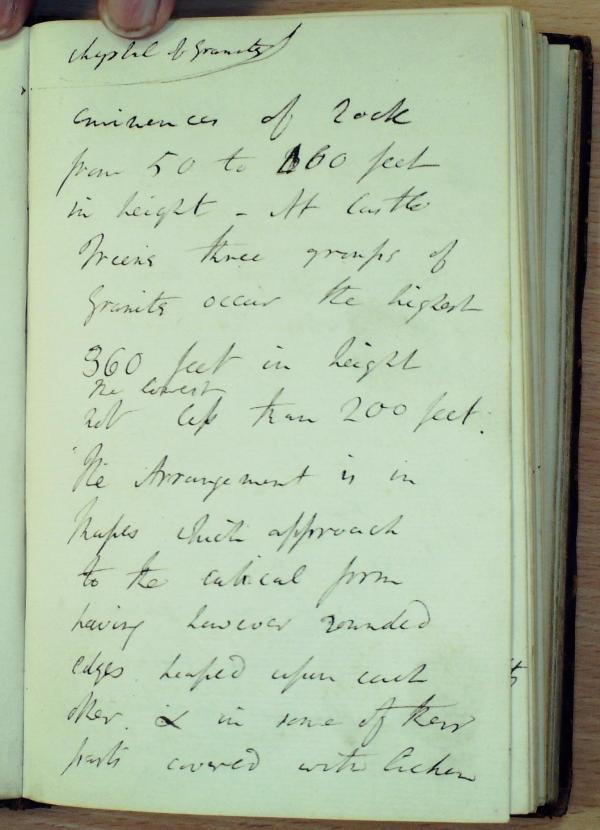 of Granite
eminences of rock
from 50 to 160 feet
in height - At Castle
Treene three groups of
Granite occur the highest
360 feet in height
the lowest
not less than 200 feet.
The Arrangement is in
shapes which approach
to the cubical form
having however rounded
edges heaped upon each
other. & in some of their
parts covered with lichen